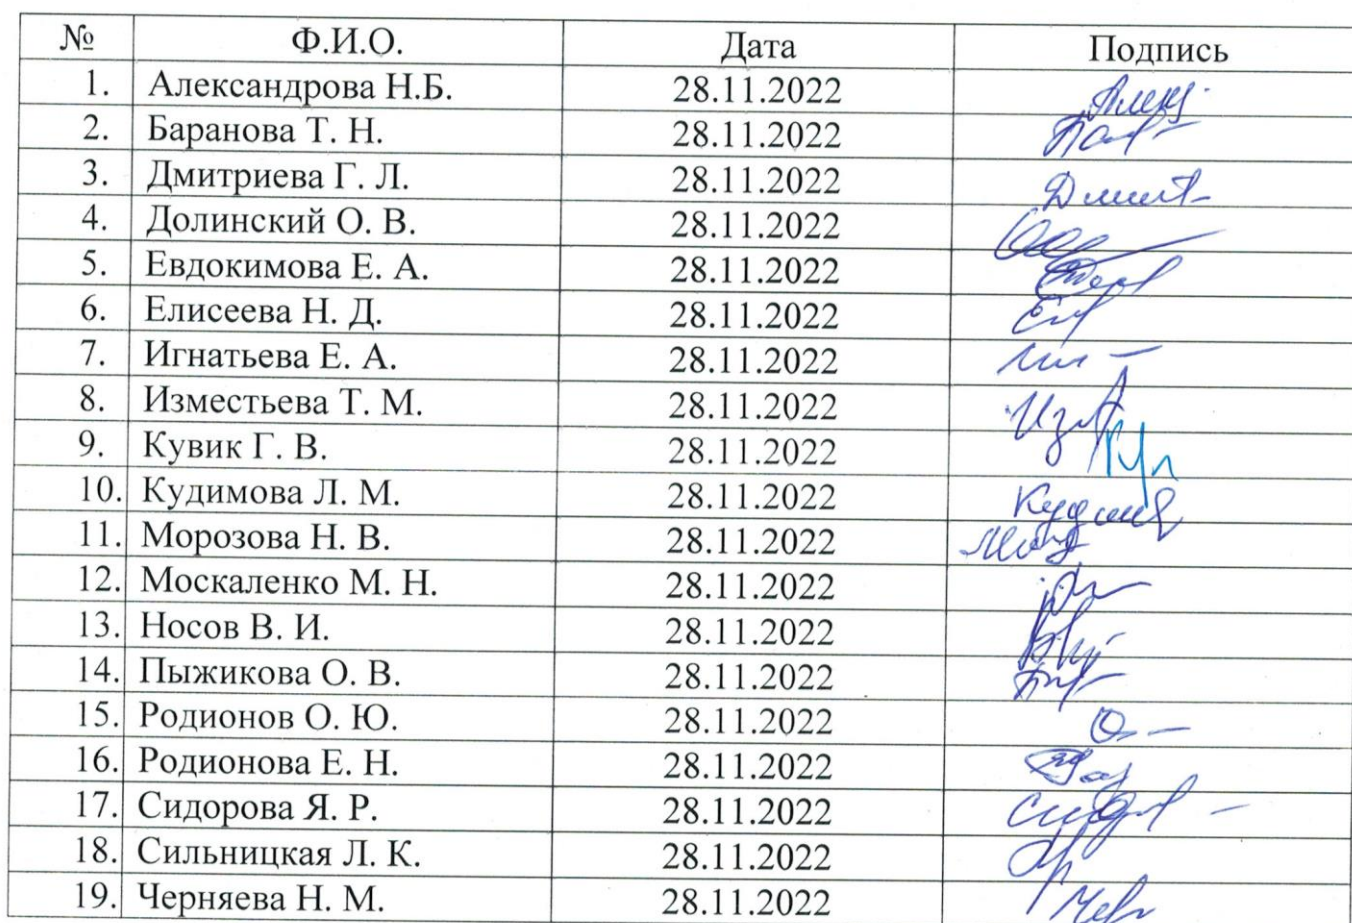 № Ф.И.О. Дата Подпись
1. Александрова Н.Б. 28.11.2022
2. Баранова Т. Н. 28.11.2022
3. Дмитриева Г. Л. 28.11.2022
4. Долинский О. В. 28.11.2022
5. Евдокимова Е. А. 28.11.2022
6. Елисеева Н. Д. 28.11.2022
7. Игнатьева Е. А. 28.11.2022
8. Изместьева Т. М. 28.11.2022
9. Кувик Г. В. 28.11.2022
10. Кудимова Л. М. 28.11.2022
11. Морозова Н. В. 28.11.2022
12. Москаленко М. Н. 28.11.2022
13. Носов В. И. 28.11.2022
14. Пыжикова О. В. 28.11.2022
15. Родионов О. Ю. 28.11.2022
16. Родионова Е. Н. 28.11.2022
17. Сидорова Я. Р. 28.11.2022
18. Сильницкая Л. К. 28.11.2022
19. Черняева Н. М. 28.11.2022